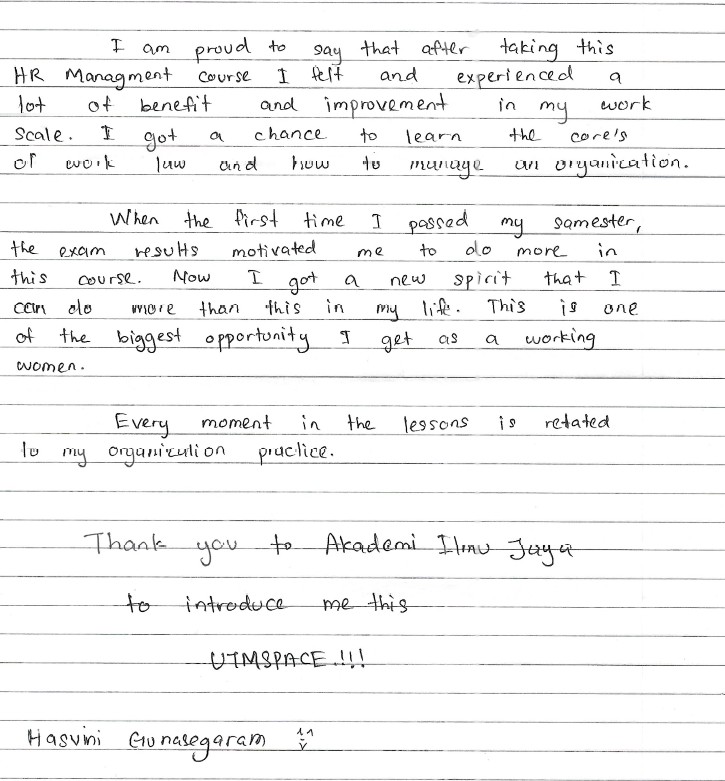 I am proud to say that after taking this
HR Managment course I felt and experienced a
lot of benefit and improvement in my work
scale. I got a chance to learn the core's
of work law and how to manage an organization.
When the first time I passed my samester,
the exam results motivated me to do more in
this course. Now I got a new spirit that I
can do more than this in my life. This is one
of the biggest opportunity I get as a working
women.
Every moment in the lessons is retated
to my organization practice.
Thank you to Akademi Ilmu Jaya
to introduce me this
UTMSPACE.!!!
Hasvini Gunasegaram